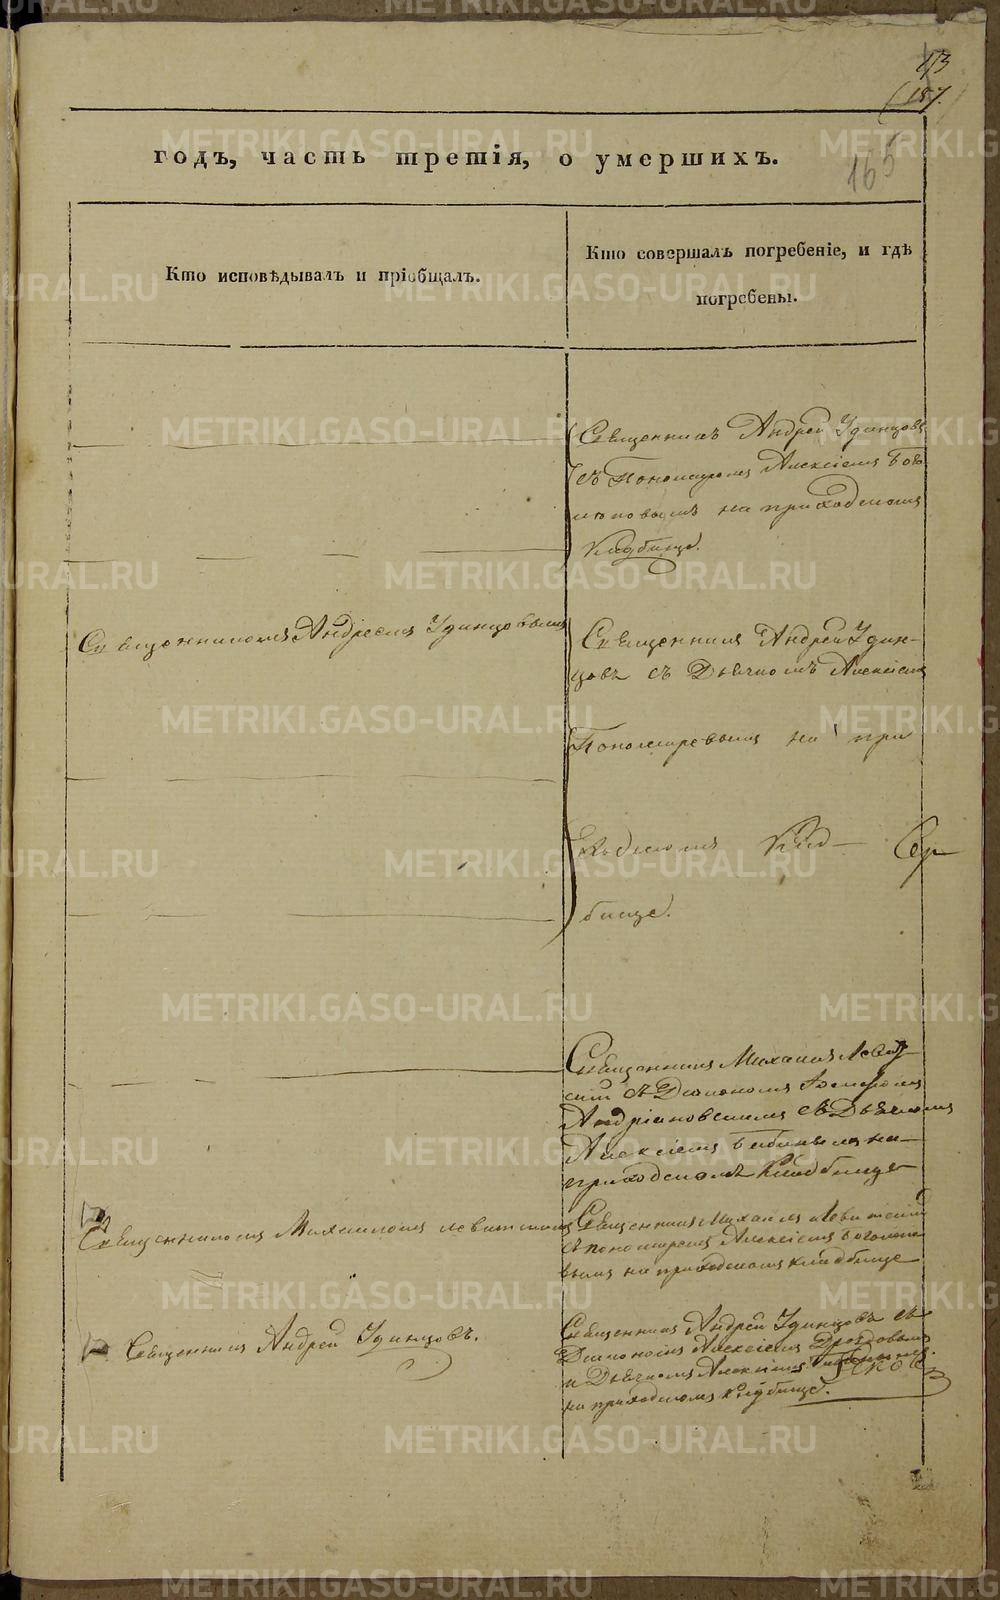 113
187.
165
годъ, часть третія, о умершихъ.
Кто исповѣдывалъ и пріобщалъ.
Кто совершалъ погребеніе, и гдѣ
погребены.
Священникъ Андрей Удинцовъ
съ Пономаремъ Алексіемъ Бого
моловымъ на приходскомъ
Кладбище.
Священникомъ Андреемъ Удинцовымъ
Священникъ Андрей Удин-
цовъ съ Дьячкомъ Алексіемъ
Пономаревымъ на при
ходскомъ Клад-
бище.
Священникъ Михаилъ Левит
скій съ Діакономъ
Андріановскимъ съ Дьячкомъ
Алексіемъ Бабинымъ на
приходскомъ Кладбище
Священникомъ Михаиломъ Левитскимъ
Священникъ Михаилъ Левитскій
съ пономаремъ Алексіемъ Богомоло
вымъ на приходскомъ кладбище
Священникъ Андрей Удинцовъ.
Священникъ Андрей Удинцовъ съ
Діакономъ Алексіемъ
и Дьячкомъ Алексіемъ
на приходскомъ кладбище.
METRIKI.GASO-URAL.RU